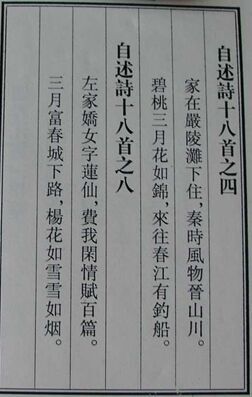 自述詩十八首之四
家在嚴陵灘下住，秦時風物晉山川。
碧桃三月花如錦，來往春江有釣船。
自述詩十八首之八
左家嬌女字蓮仙，費我閑情賦百篇。
三月富春城下路，楊花如雪雪如烟。